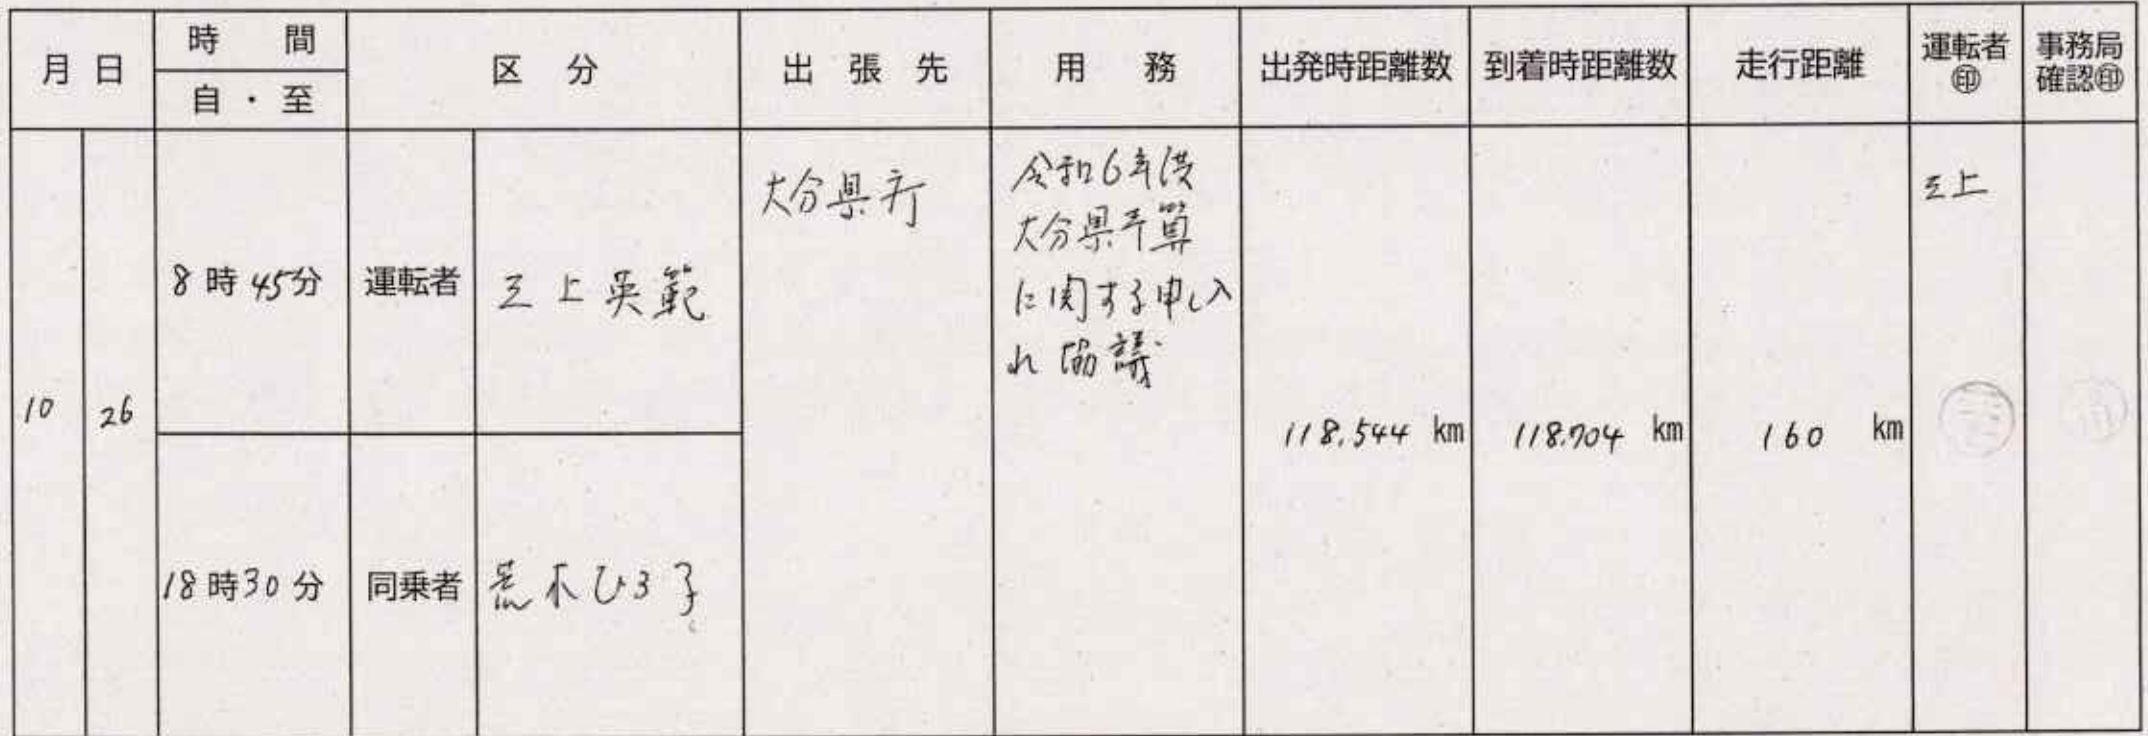 月 日
時 間
自 ・ 至
区 分
出 張 先
用 務
出発時距離数
到着時距離数
走行距離
運転者
㊞
事務局
確認㊞
10
26
8時45分
運転者
三上英範
大分県庁
令和6年度
大分県予算
に関する申し入
れ協議
118,544 km
118,704 km
160 km
三上
18時30分
同乗者
荒木ひろ子